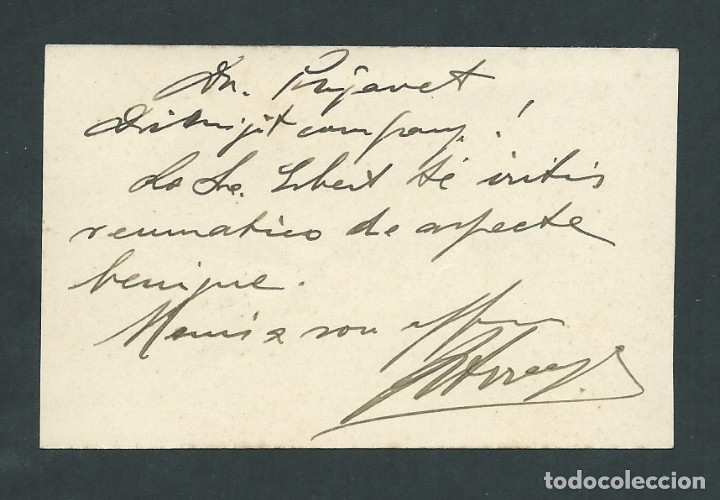 Dr. Pujavet
Distingit company!
La Sra. Gibert té iritis
reumatico de aspecte
benigne.
Mani a son
todocoleccion